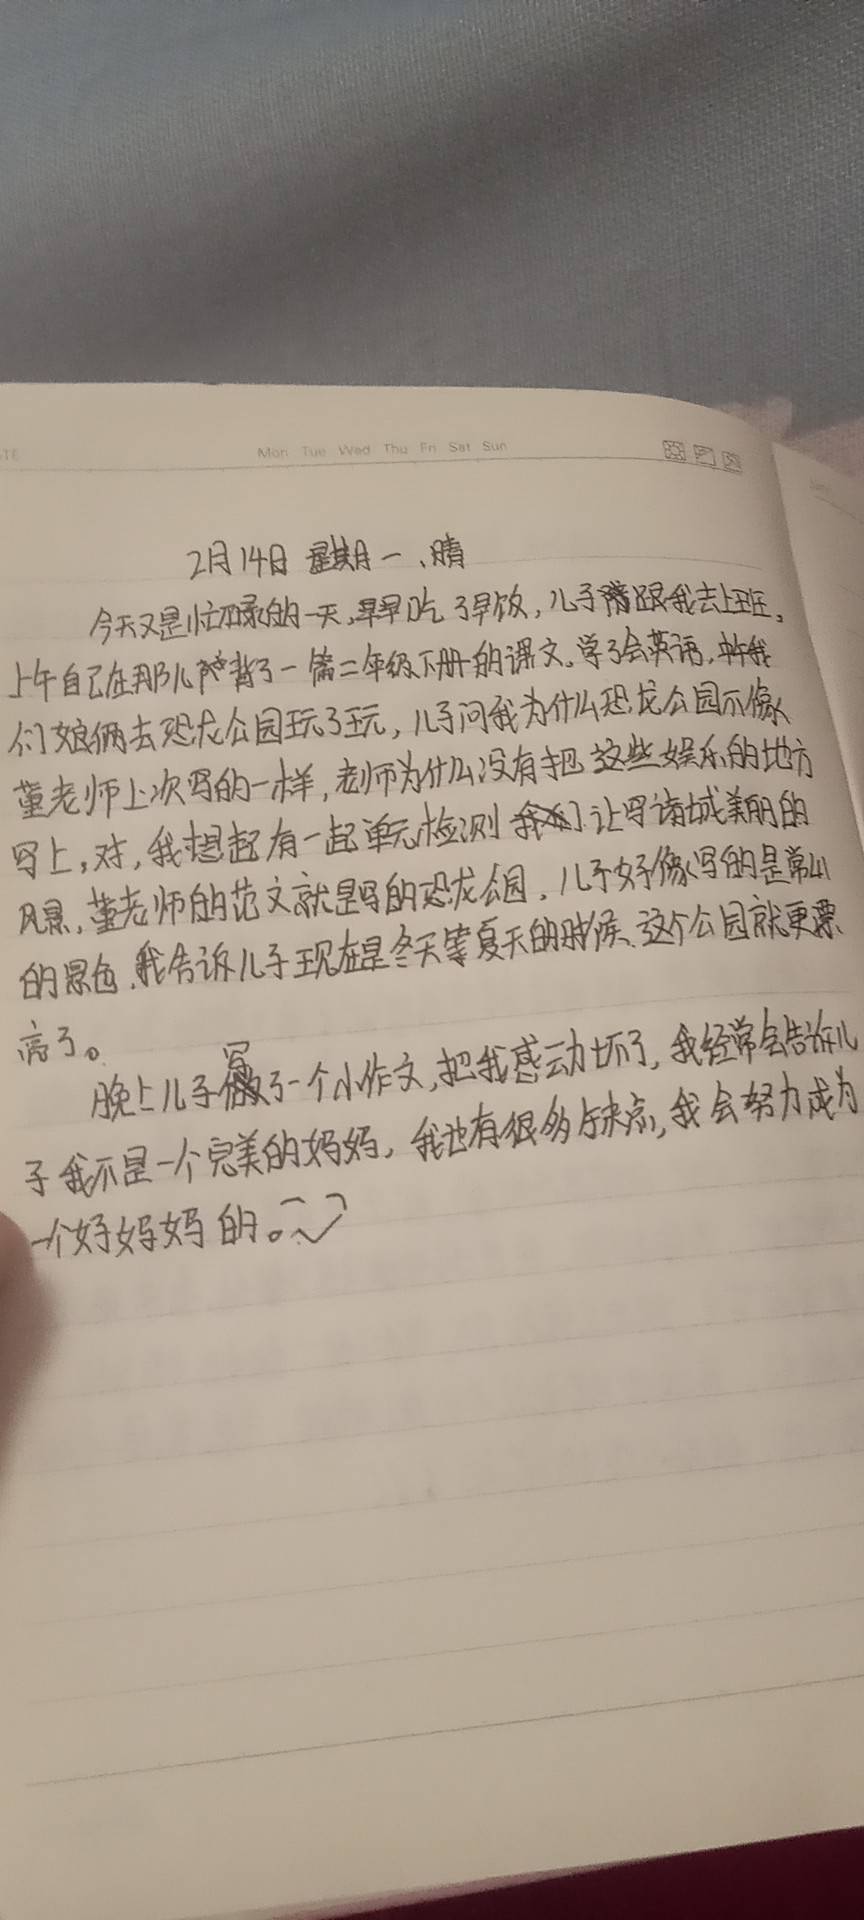 TE Mon Tue Wed Thu Fri Sat Sun
2月14日 星期一、晴
今天又是忙碌的一天,早早吃了早饭,儿子跟我去上班。
上午自己在那儿背了一篇二年级下册的课文,学了会英语,中午我
们娘俩去恐龙公园玩了玩,儿子问我为什么恐龙公园不像
董老师上次写的一样,老师为什么没有把这些娱乐的地方
写上,对,我想起有一起单元检测让写诸城美丽的
风景,董老师的范文就是写的恐龙公园,儿子好像写的是常山
的景色,我告诉儿子现在是冬天等夏天的时候、这个公园就更漂
亮了。
晚上儿子写了一个小作文,把我感动坏了,我经常会告诉儿
子我不是一个完美的妈妈,我也有很多缺点,我会努力成为
一个好妈妈的。